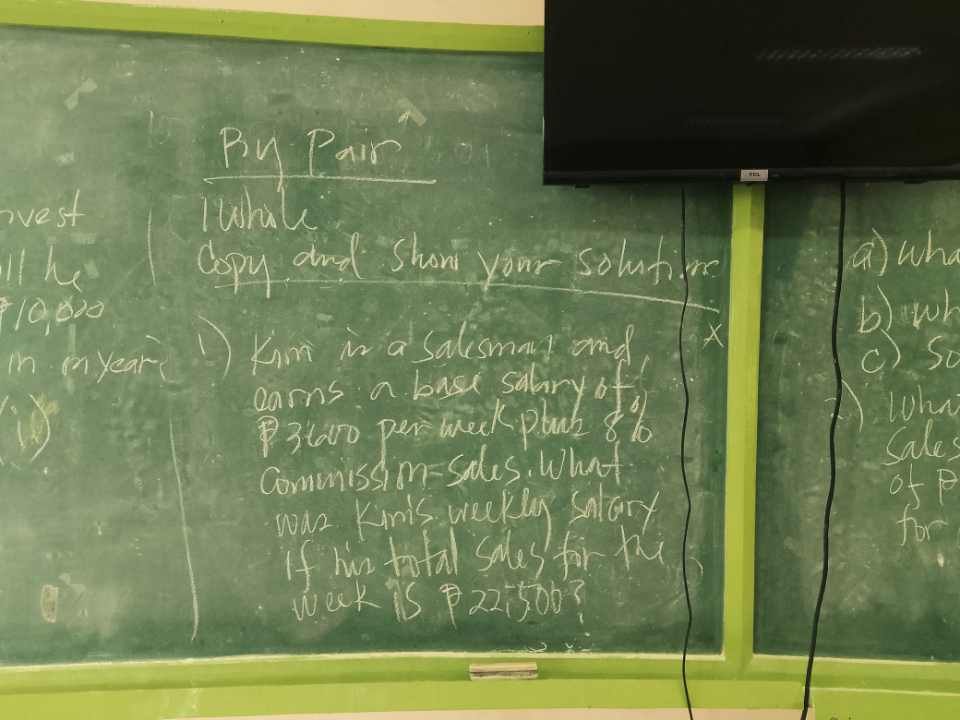 nvest
ll he
₱10,000
in a year?
(i)
By Pair
1 Whole
Copy and show your solutions
x
1) Kim is a salesman and
earns a base salary of
₱3600 per week plus 8%
commission-sales. What
was Kim's weekly salary
if his total sales for the
week is ₱22,500?
TCL
a) wha
b) wh
c) So
2) What
Sales
of ₱
for